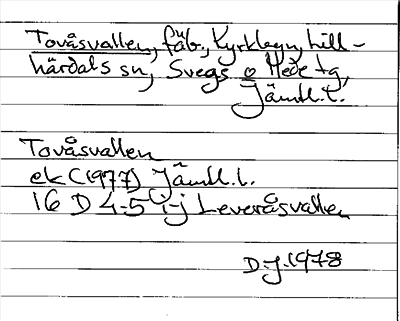 Tovåsvallen, fäb., Kyrkbyn, Lill-
härdals sn, Svegs o Hede tg,
Jämtl. l.
Tovåsvallen
ek (1977) Jämtl. l.
16 D 4-5 i-j Leveråsvallen
D.J. 1978